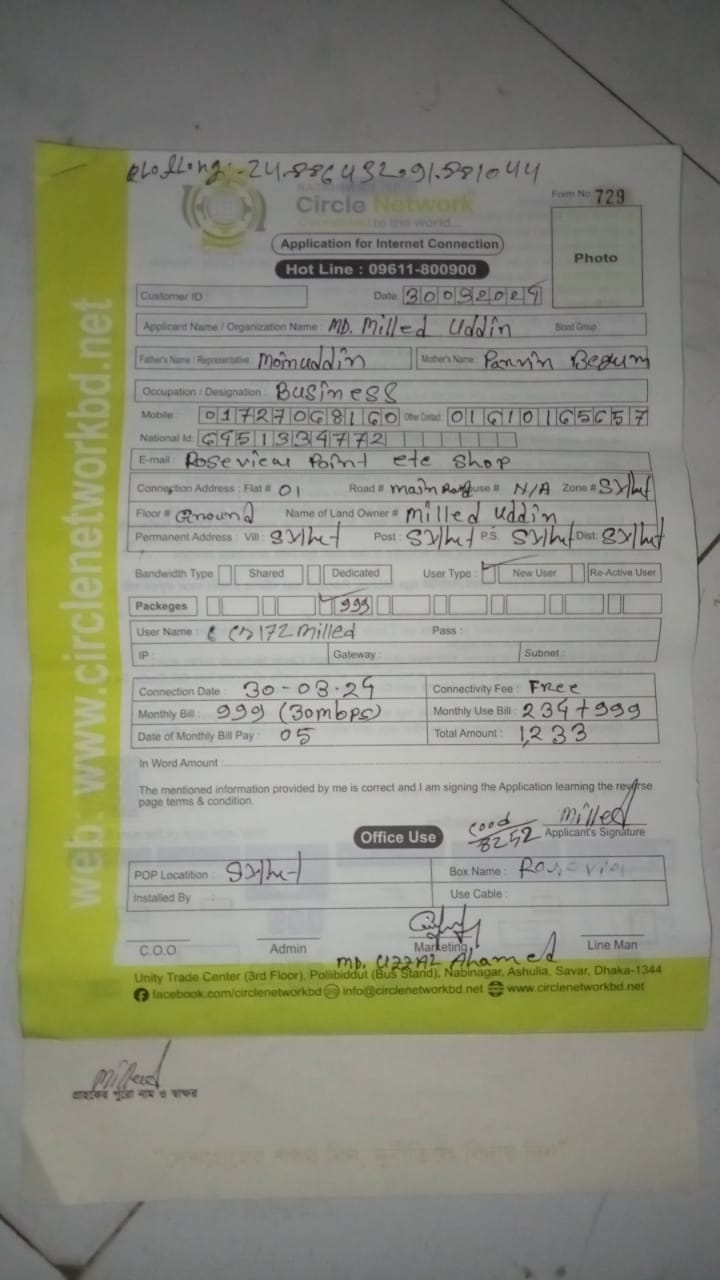 24.886432,91.581044
Circle Network
Connected to the world...
Form No 729
Photo
Application for Internet Connection
Hot Line : 09611-800900
Customer ID : Date : 30032024
Applicant Name / Organization Name : MD. Milled Uddin Blood Group :
Father's Name / Representative : Momuddin Mother's Name : Parvin Begum
Occupation / Designation : Business
Mobile : 01727068160 Other Contact 01610165657
National Id: 6951334772
E-mail : Roseview Point ete Shop
Connection Address : Flat # 01 Road # main Road House # N/A Zone # Sylhet
Floor # Ground Name of Land Owner # Milled Uddin
Permanent Address : Vill : Sylhet Post : Sylhet P.S. Sylhet Dist: Sylhet
Bandwidth Type Shared Dedicated User Type : New User Re-Active User
Packeges 999
User Name : CN172Milled Pass :
IP : Gateway : Subnet :
Connection Date : 30-03-24 Connectivity Fee : Free
Monthly Bill : 999 (30mbps) Monthly Use Bill : 234+999
Date of Monthly Bill Pay : 05 Total Amount : 1,233
In Word Amount :
The mentioned information provided by me is correct and I am signing the Application learning the reverse
page terms & condition.
8252 Milled
Office Use Applicant's Signature
POP Locatition : Sylhet Box Name :
Installed By : Use Cable :
C.O.O Admin Marketing Line Man
MD. UZZAL Ahamed
Unity Trade Center (3rd Floor), Pollibiddut (Bus Stand), Nabinagar, Ashulia, Savar, Dhaka-1344
facebook.com/circlenetworkbd info@circlenetworkbd.net www.circlenetworkbd.net
web: www.circlenetworkbd.net
Milled
গ্রাহকের পুরো নাম ও স্বাক্ষর